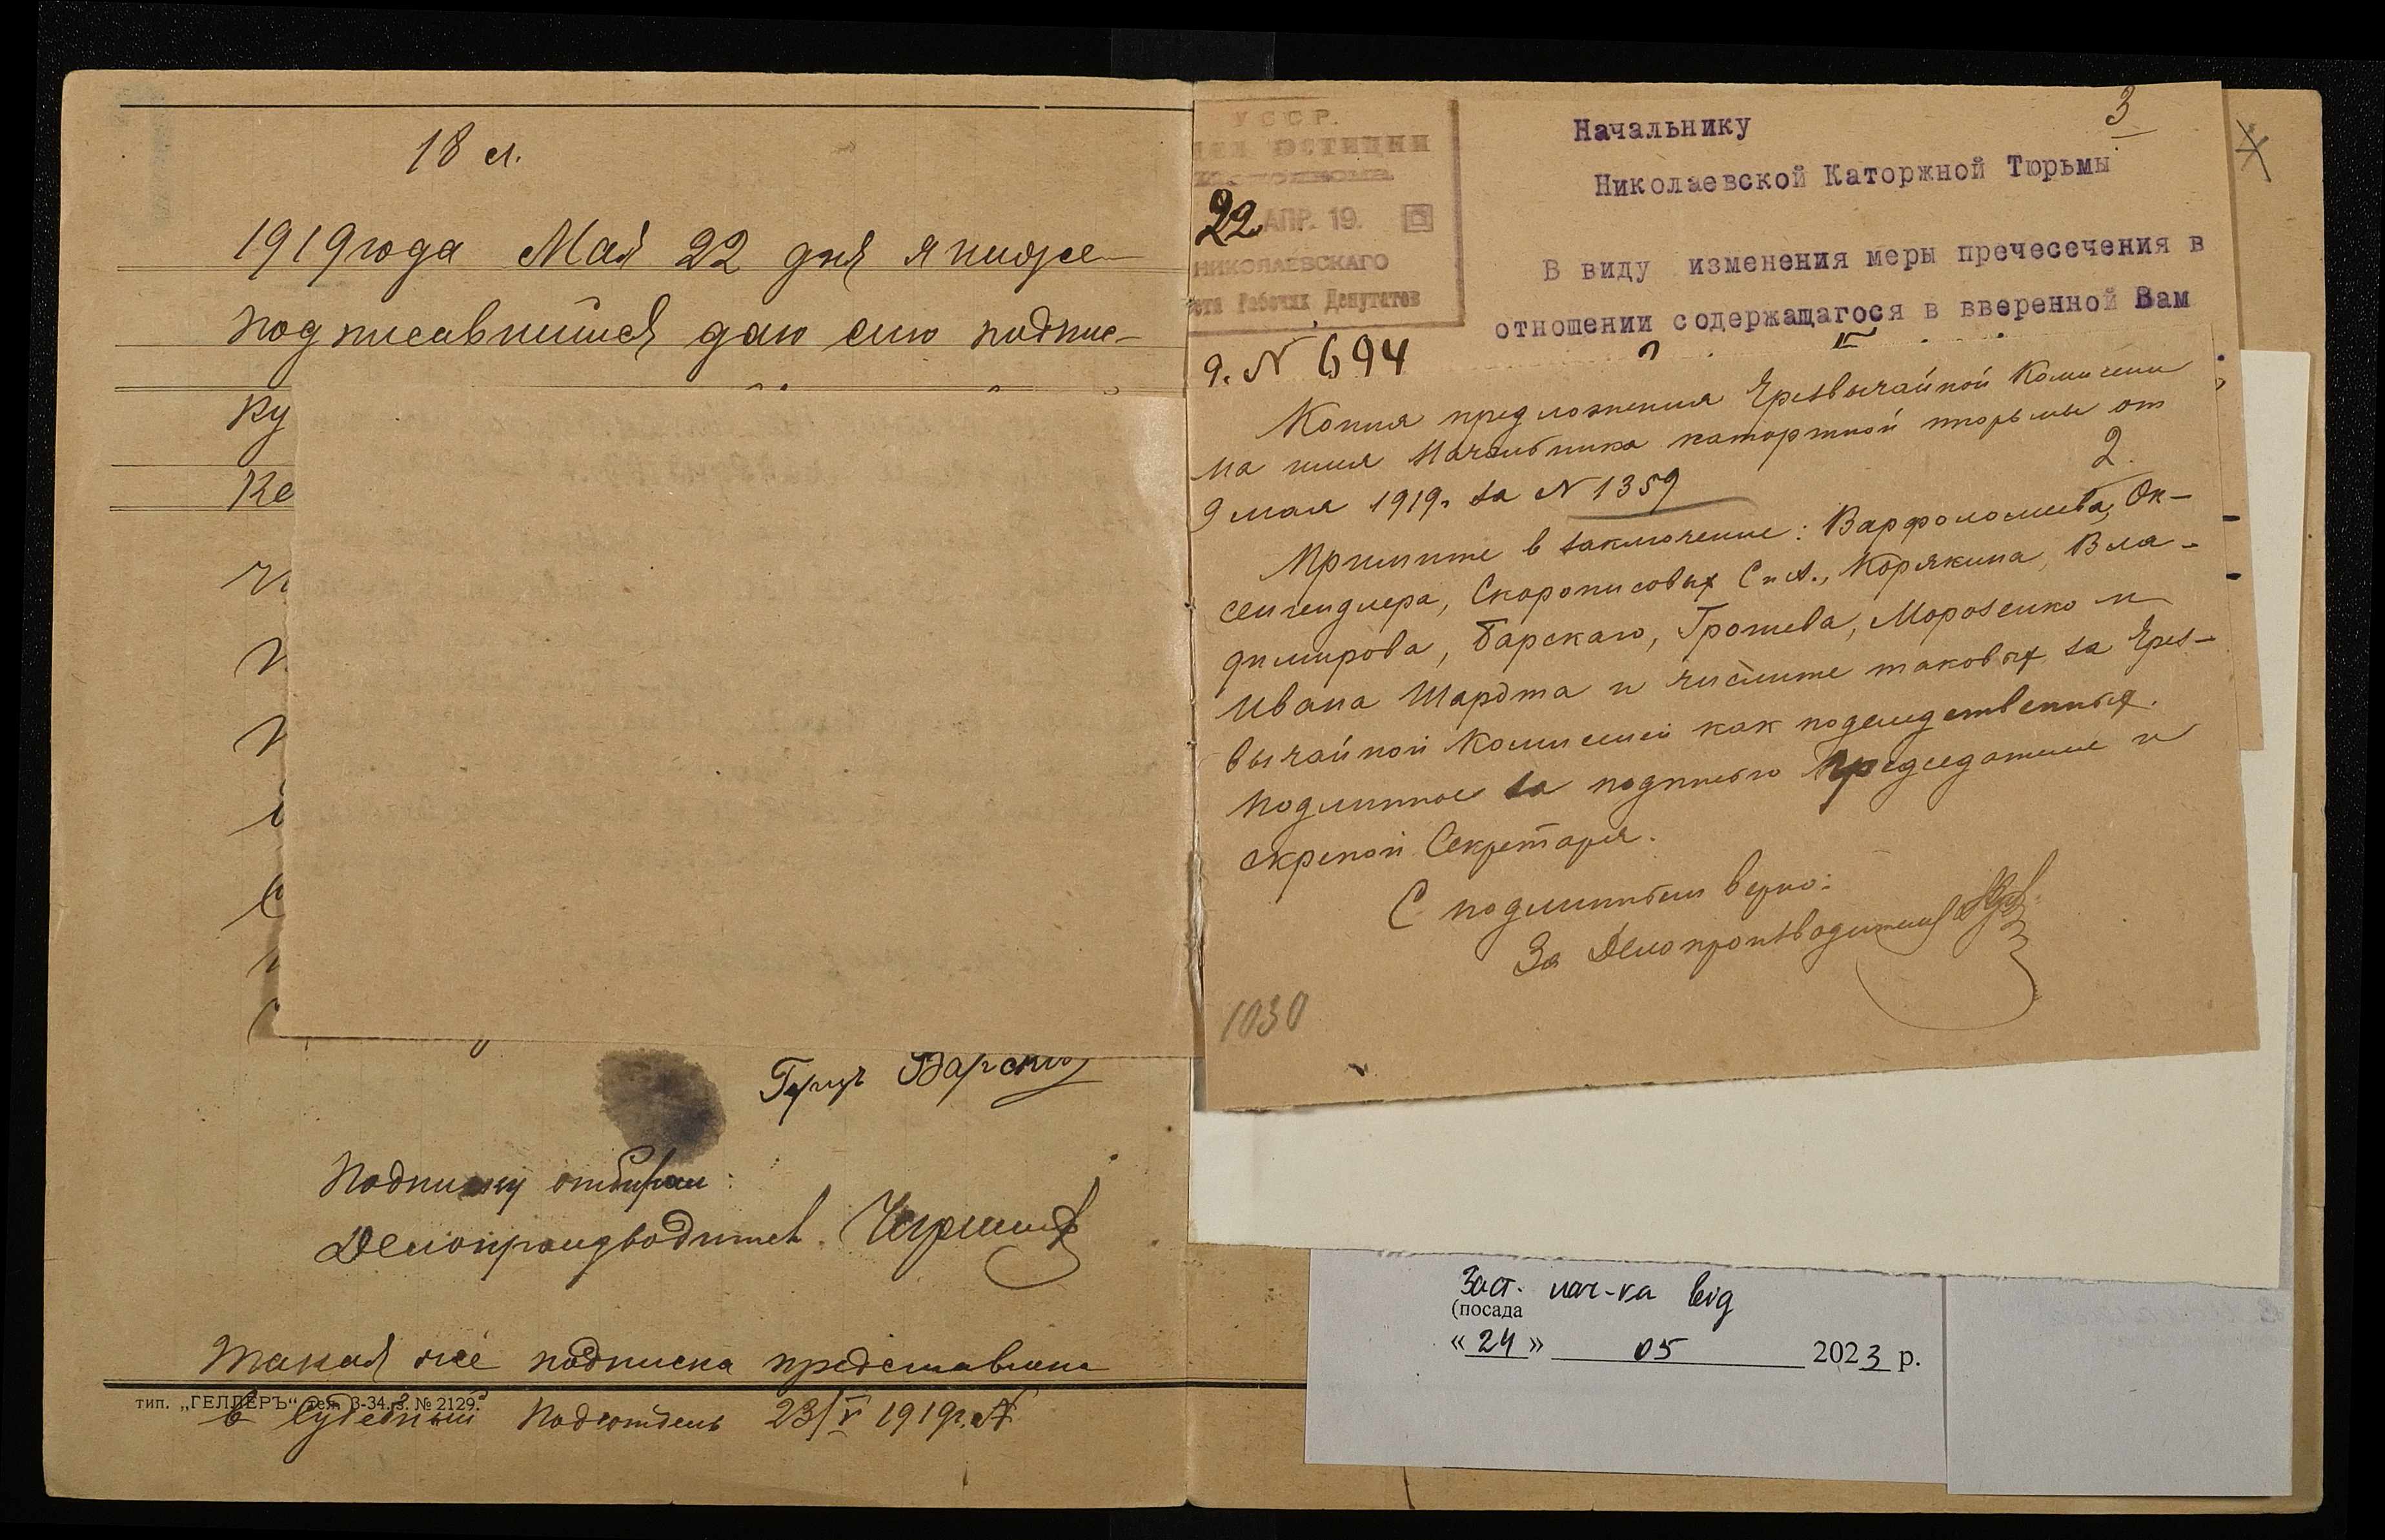 18 л.
1919 года Мая 22 дня я ниже
подписавшийся даю сию подпис-
ку
Ке
Гершъ Барский
Подписку отбирал:
Делопроизводитель
Такая же подписка представлена
тип. „ГЕЛЛЕРЪ“ тел. 3-34. З. № 2129.
в Судебный Подотдель 23/V 1919 г. №
УССР.
ЮСТИЦИИ
22 АПР. 19.
НИКОЛАЕВСКАГО
Рабочих Депутатов
д. N 694
3
Начальнику
Николаевской Каторжной Тюрьмы
В виду изменения меры пречесечения в
отношении содержащагося в вверенной Вам
Копия предложения Чрезвычайной Комиссии
на имя Начальника каторжной тюрьмы от
9 мая 1919 г. за N 1359
2.
Примите в заключение: Варфоломеева, Ок-
сенгендлера, Скорописовых С и А., Корякина, Вла-
димирова, Барскаго, Грошева, Морозенко и
Ивана Шардта и числите таковых за Чрез-
вычайной Комиссией как подследственных.
Подлинное за подписью Председателя и
скрепой Секретаря.
С подлинным верно:
За Делопроизводителя
1030
Заст. нач-ка від
(посада
« 24 » 05 2023 р.